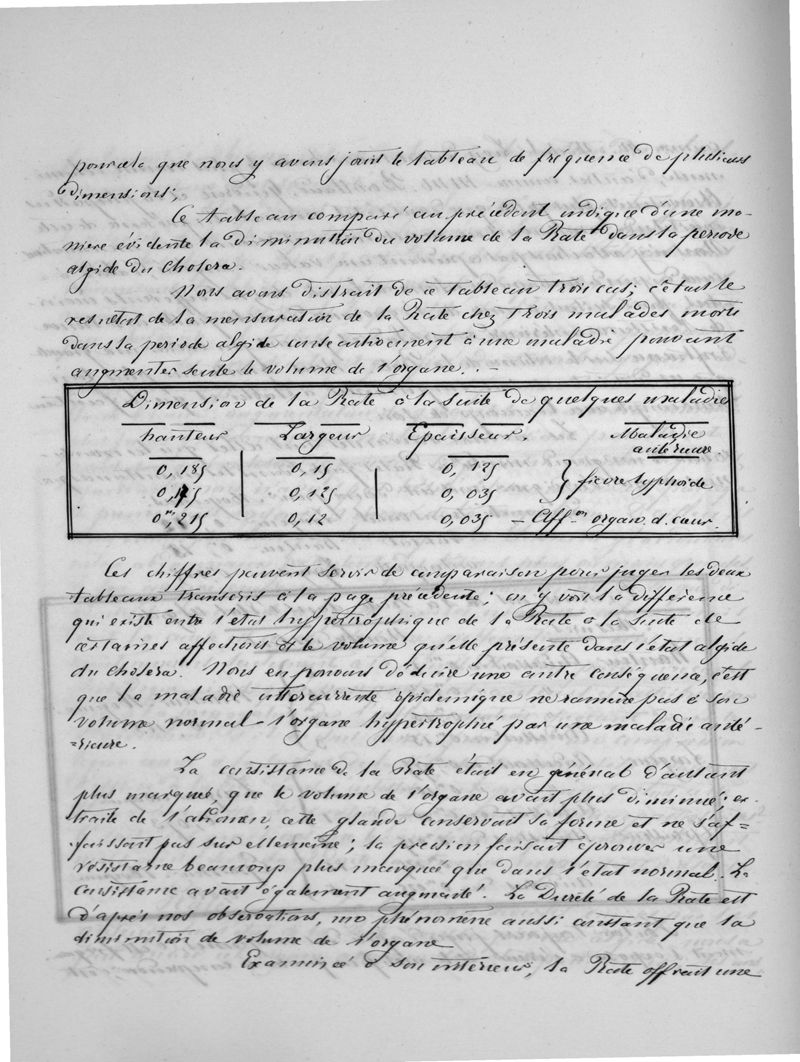 pour cela que nous y avons joint le tableau de fréquence de plusieurs
dimensions,
Ce tableau comparé au précédent indique d'une ma-
nière évidente la diminution du volume de la Rate dans la periode
algide du Cholera.
Nous avons distrait de ce tableau trois cas; c'était le
resultat de la mensuration de la Rate chez trois malades morts
dans la periode algide consecutivement à une maladie pouvant
augmenter seule le volume de l'organe. –
Dimension de la Rate à la suite de quelques maladies
hauteur Largeur Epaisseur. Maladie
anterieure.
0,185 0,15 0,125
0,175 0,125 0,035 } fievre typhoide
0m,215 0,12 0,035 – Affon organo. d. cœur.
Ces chiffres peuvent servir de comparaison pour juger les deux
tableaux transcris à la page précédente; on y voit la différence
qui existe entre l'état hypertrophique de la Rate à la suite de
certaines affections et le volume qu'elle présente dans l'état algide
du cholera. Nous en pouvons déduire une autre conséquence, c'est
que la maladie intercurrente épidémique ne ramène pas à son
volume normal l'organe hypertrophié par une maladie anté-
=rieure.
La consistance de la Rate était en général d'autant
plus marquée, que le volume de l'organe avait plus diminué; ex-
traite de l'abdomen, cette glande conservait sa forme et ne s'af=
faissait pas sur elle même; la pression faisait éprouver une
résistance beaucoup plus marquée que dans l'état normal. La
consistance avait également augmenté. La Dureté de la Rate est
d'après nos observations, un phénomène aussi constant que la
diminution de volume de l'organe
Examinée à son intérieur, la Rate offrait une